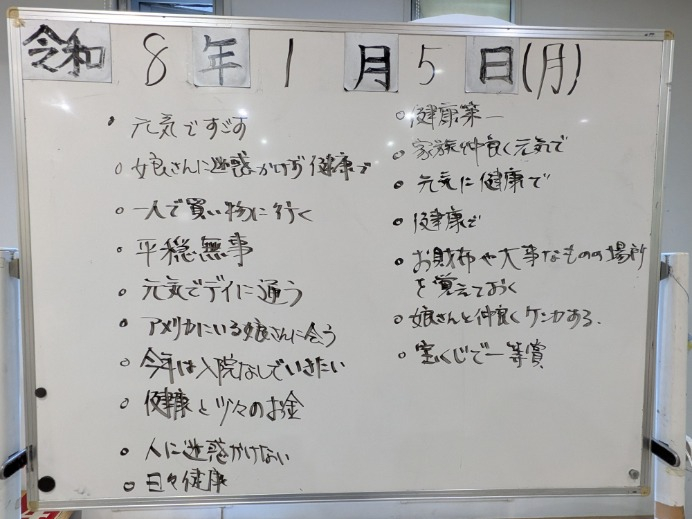 令和8年1月5日(月)
元気ですごす
娘さんに迷惑かけず健康で
一人で買い物に行く
平穏無事
元気でデイに通う
アメリカにいる娘さんに会う
今年は入院なしでいきたい
健康と少々のお金
人に迷惑かけない
日々健康
健康第一
家族仲良く元気で
元気に健康で
健康で
お財布や大事なものの場所
を覚えておく
娘さんと仲良くケンカする
宝くじで一等賞